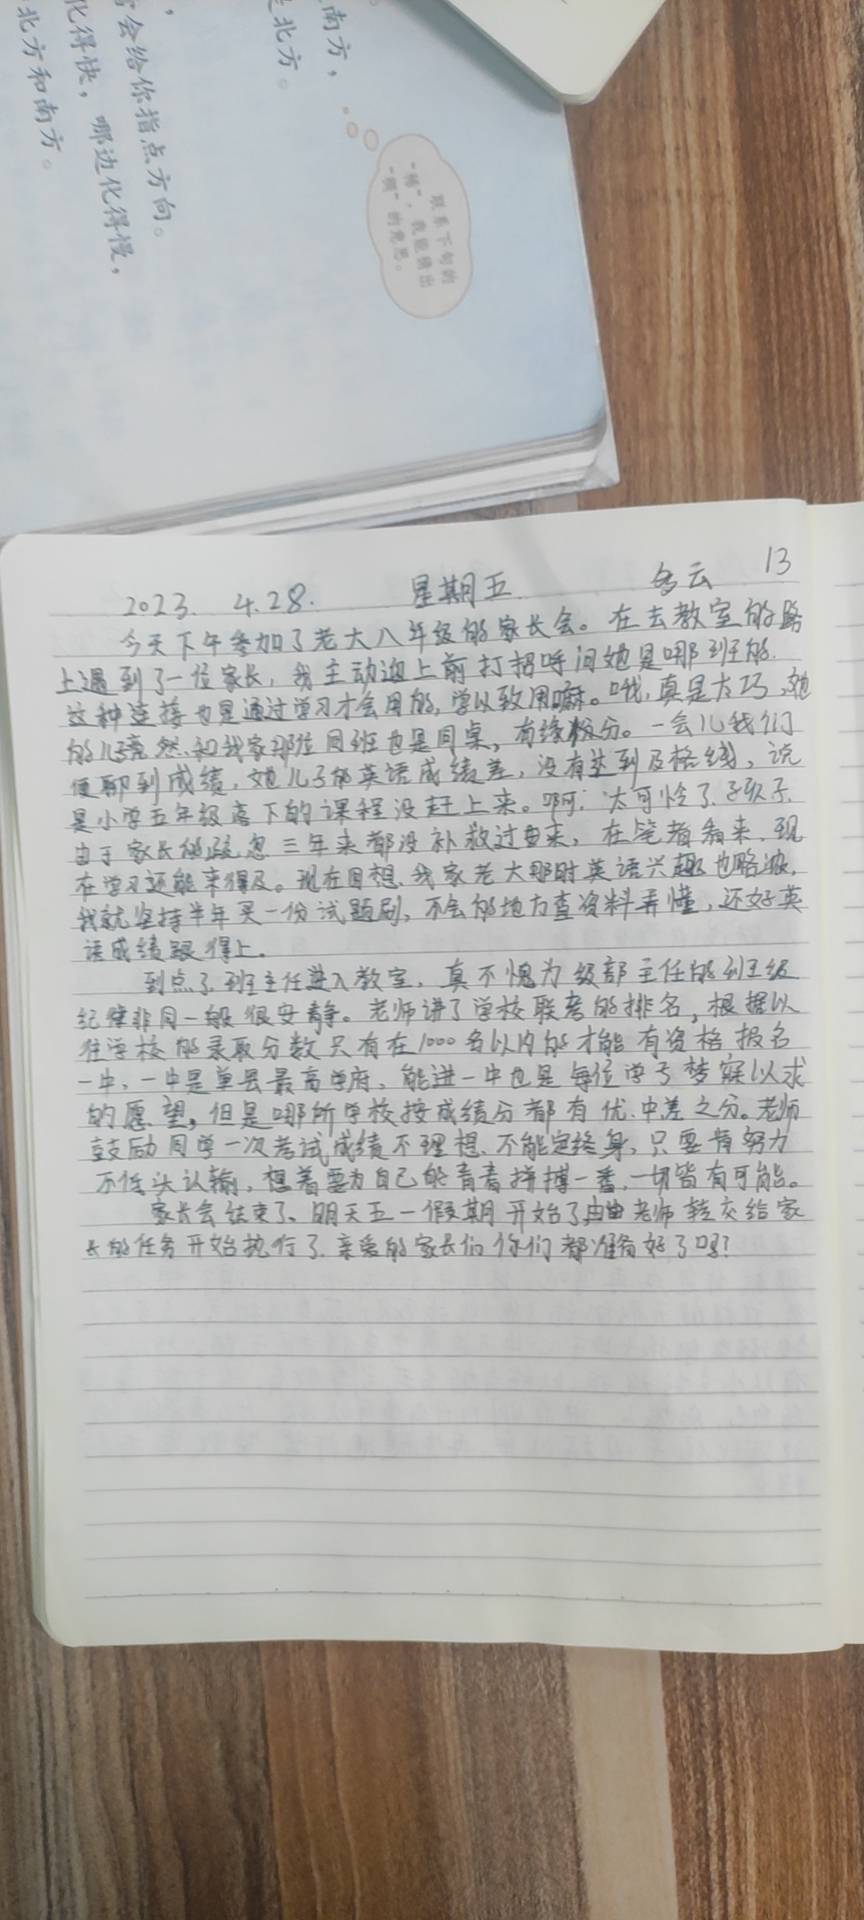 南方，
是北方。
会给你指点方向。
化得快，哪边化得慢，
北方和南方。
联系下句的
13
2023. 4.28. 星期五 多云
今天下午参加了老大八年级的家长会。在去教室的路
上遇到了一位家长，我主动迎上前打招呼问她是哪班的.
这种连接也是通过学习才会用的，学以致用嘛。哦，真是太巧，她
的儿子竟然和我家那位同班也是同桌，有缘份。一会儿我们
便聊到成绩，她儿子的英语成绩差，没有达到及格线，说
是小学五年级落下的课程没赶上来。啊！太可怜了孩子
由于家长的疏忽三年来都没补救过来，在笔者看来，现
在学习还能来得及。现在回想，我家老大那时英语兴趣也略淡，
我就坚持半年买一份试题刷，不会的地方查资料弄懂，还好英
语成绩跟得上。
到点了班主任进入教室，真不愧为级部主任的班级
纪律非同一般很安静。老师讲了学校联考的排名，根据以
往学校的录取分数只有在1000名以内的才能有资格报名
一中，一中是单县最高学府，能进一中也是每位学子梦寐以求
的愿望，但是哪所学校按成绩分都有优.中差之分。老师
鼓励同学一次考试成绩不理想.不能定终身，只要肯努力
不低头认输，想着要为自己的青春拼搏一番，一切皆有可能。
家长会结束了、明天五一假期开始了由老师转交给家
长的任务开始执行了.亲爱的家长们你们都准备好了吗？